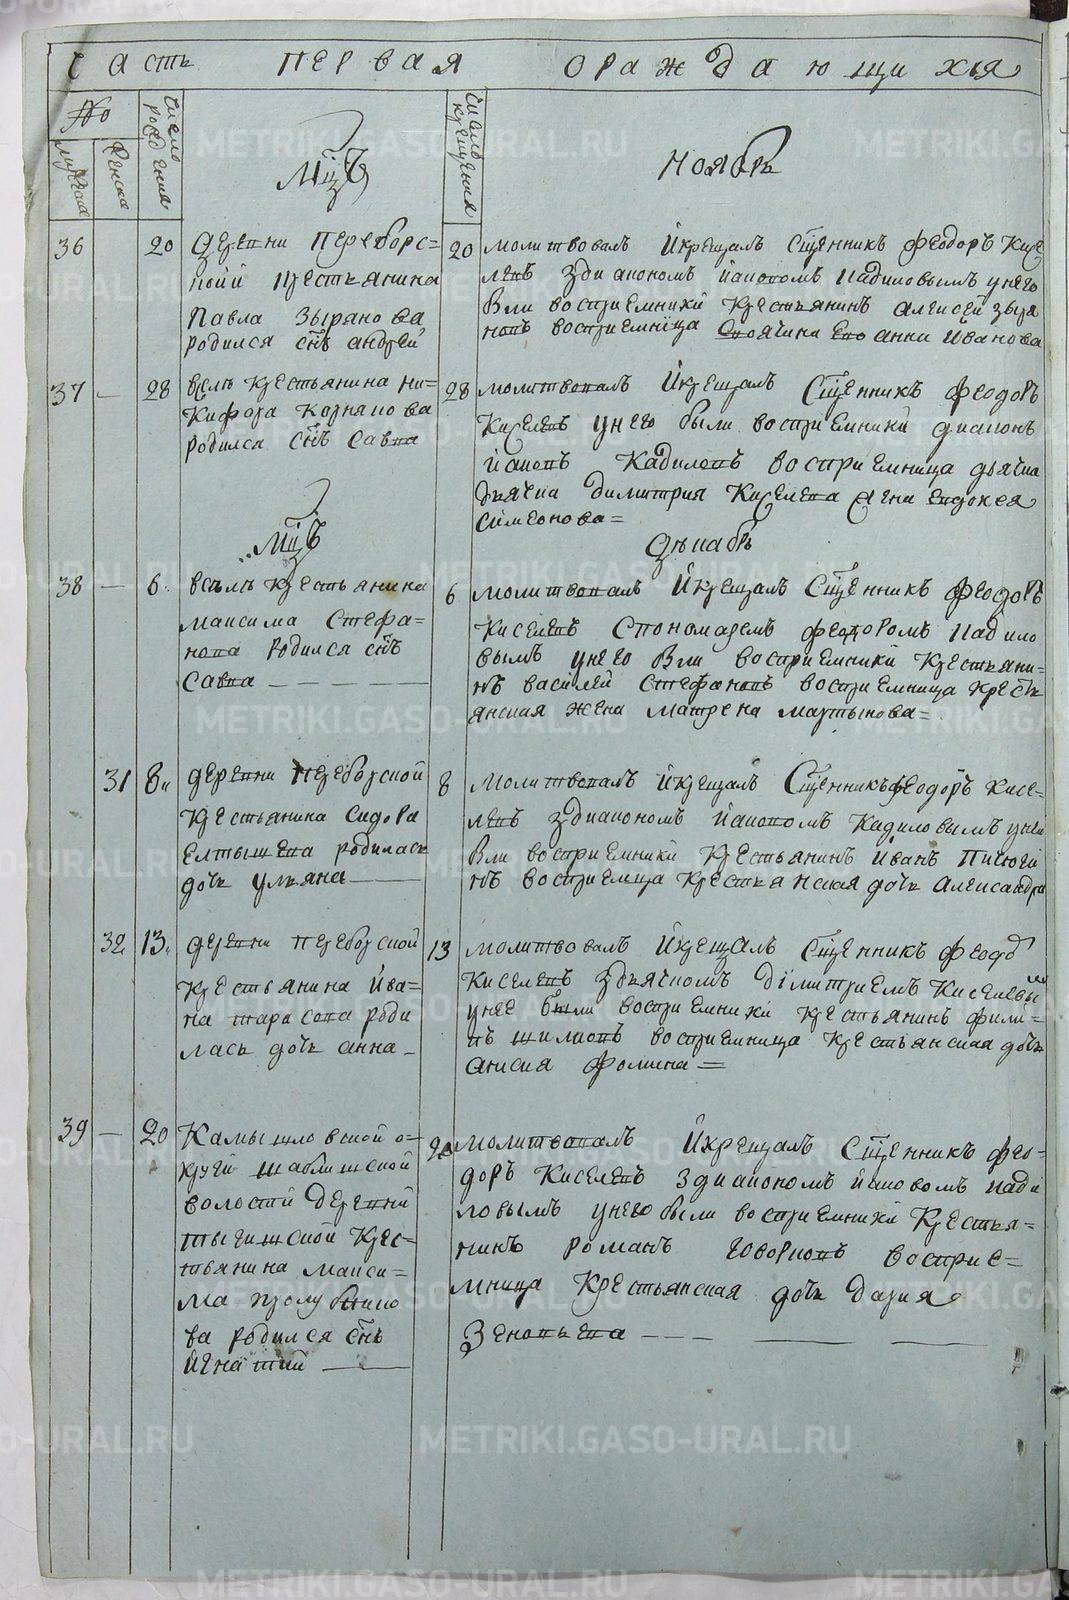 Часть первая о раждающихся
№
мужска
женска
число рождения
число крещения
Мцъ
Ноябрь
36
20
Деревни Переборс=
кой крестьянина
Павла Зырянова
родился снъ андрей
20
молитвовалъ Икрещалъ Сщенникъ феодоръ Кисе
левъ здиакономъ иаковомъ кадиловымъ унего
были восприемники Крестьянинъ алексей зыря
новъ восприемница анна иванова
37
—
28
веси крестьянина ни=
кифора
родился снъ Савва
28
молитвовалъ Икрещалъ Сщенникъ феодоръ
Киселевъ унего были восприемники диаконъ
иаковъ Кадиловъ восприемница дьячка
дьячка димитрия Киселева евдокея
симеонова=
Мцъ
Декабрь
38
—
6
веси крестьянина
максима Стефа=
нова родился снъ
Савва
6
молитвовалъ Икрещалъ Сщенникъ феодоръ
КиселевъСпономаремъ феодоромъ кадило
вымъ унего были восприемники крестьяни=
нъ василей Стефановъ восприемница крестъ
янская жена матрена мартынова=
31
8
деревни переборской
крестьянина Сидора
Елтышева родилась
дочь ульяна
8
молитвовалъ икрещалъ Сщенникъ феодоръ кисе=
левъ здиакономъ иаковомъ Кадиловымъ унея
были восприемники крестьянинъ иванъ
нъ восприемница крестьянская дочь александра
32
13
деревни переборской
крестьянина ива=
на тарасова роди
лась дочь анна
13
молитвовалъ Икрещалъ Сщенникъ феодоръ
Киселевъ здьячкомъ дімитриемъ Киселевымъ
унее были восприемники крестьянинъ фили=
пъ шиловъ восприемница крестьянская дочь
анисия фомина=
39
—
20
Камышловской о=
круги
волости деревни
крес=
тьянина макси=
ма
ва родился снъ
игнатий
20
молитвовалъ Икрещалъ Сщенникъ фео=
доръ Киселевъ здиакономъ иаковомъ кади
ловымъ унего были восприемники Крестья=
нинъ романъ говорковъ восприе=
мница Крестьянская дочь дария
Зеновьева